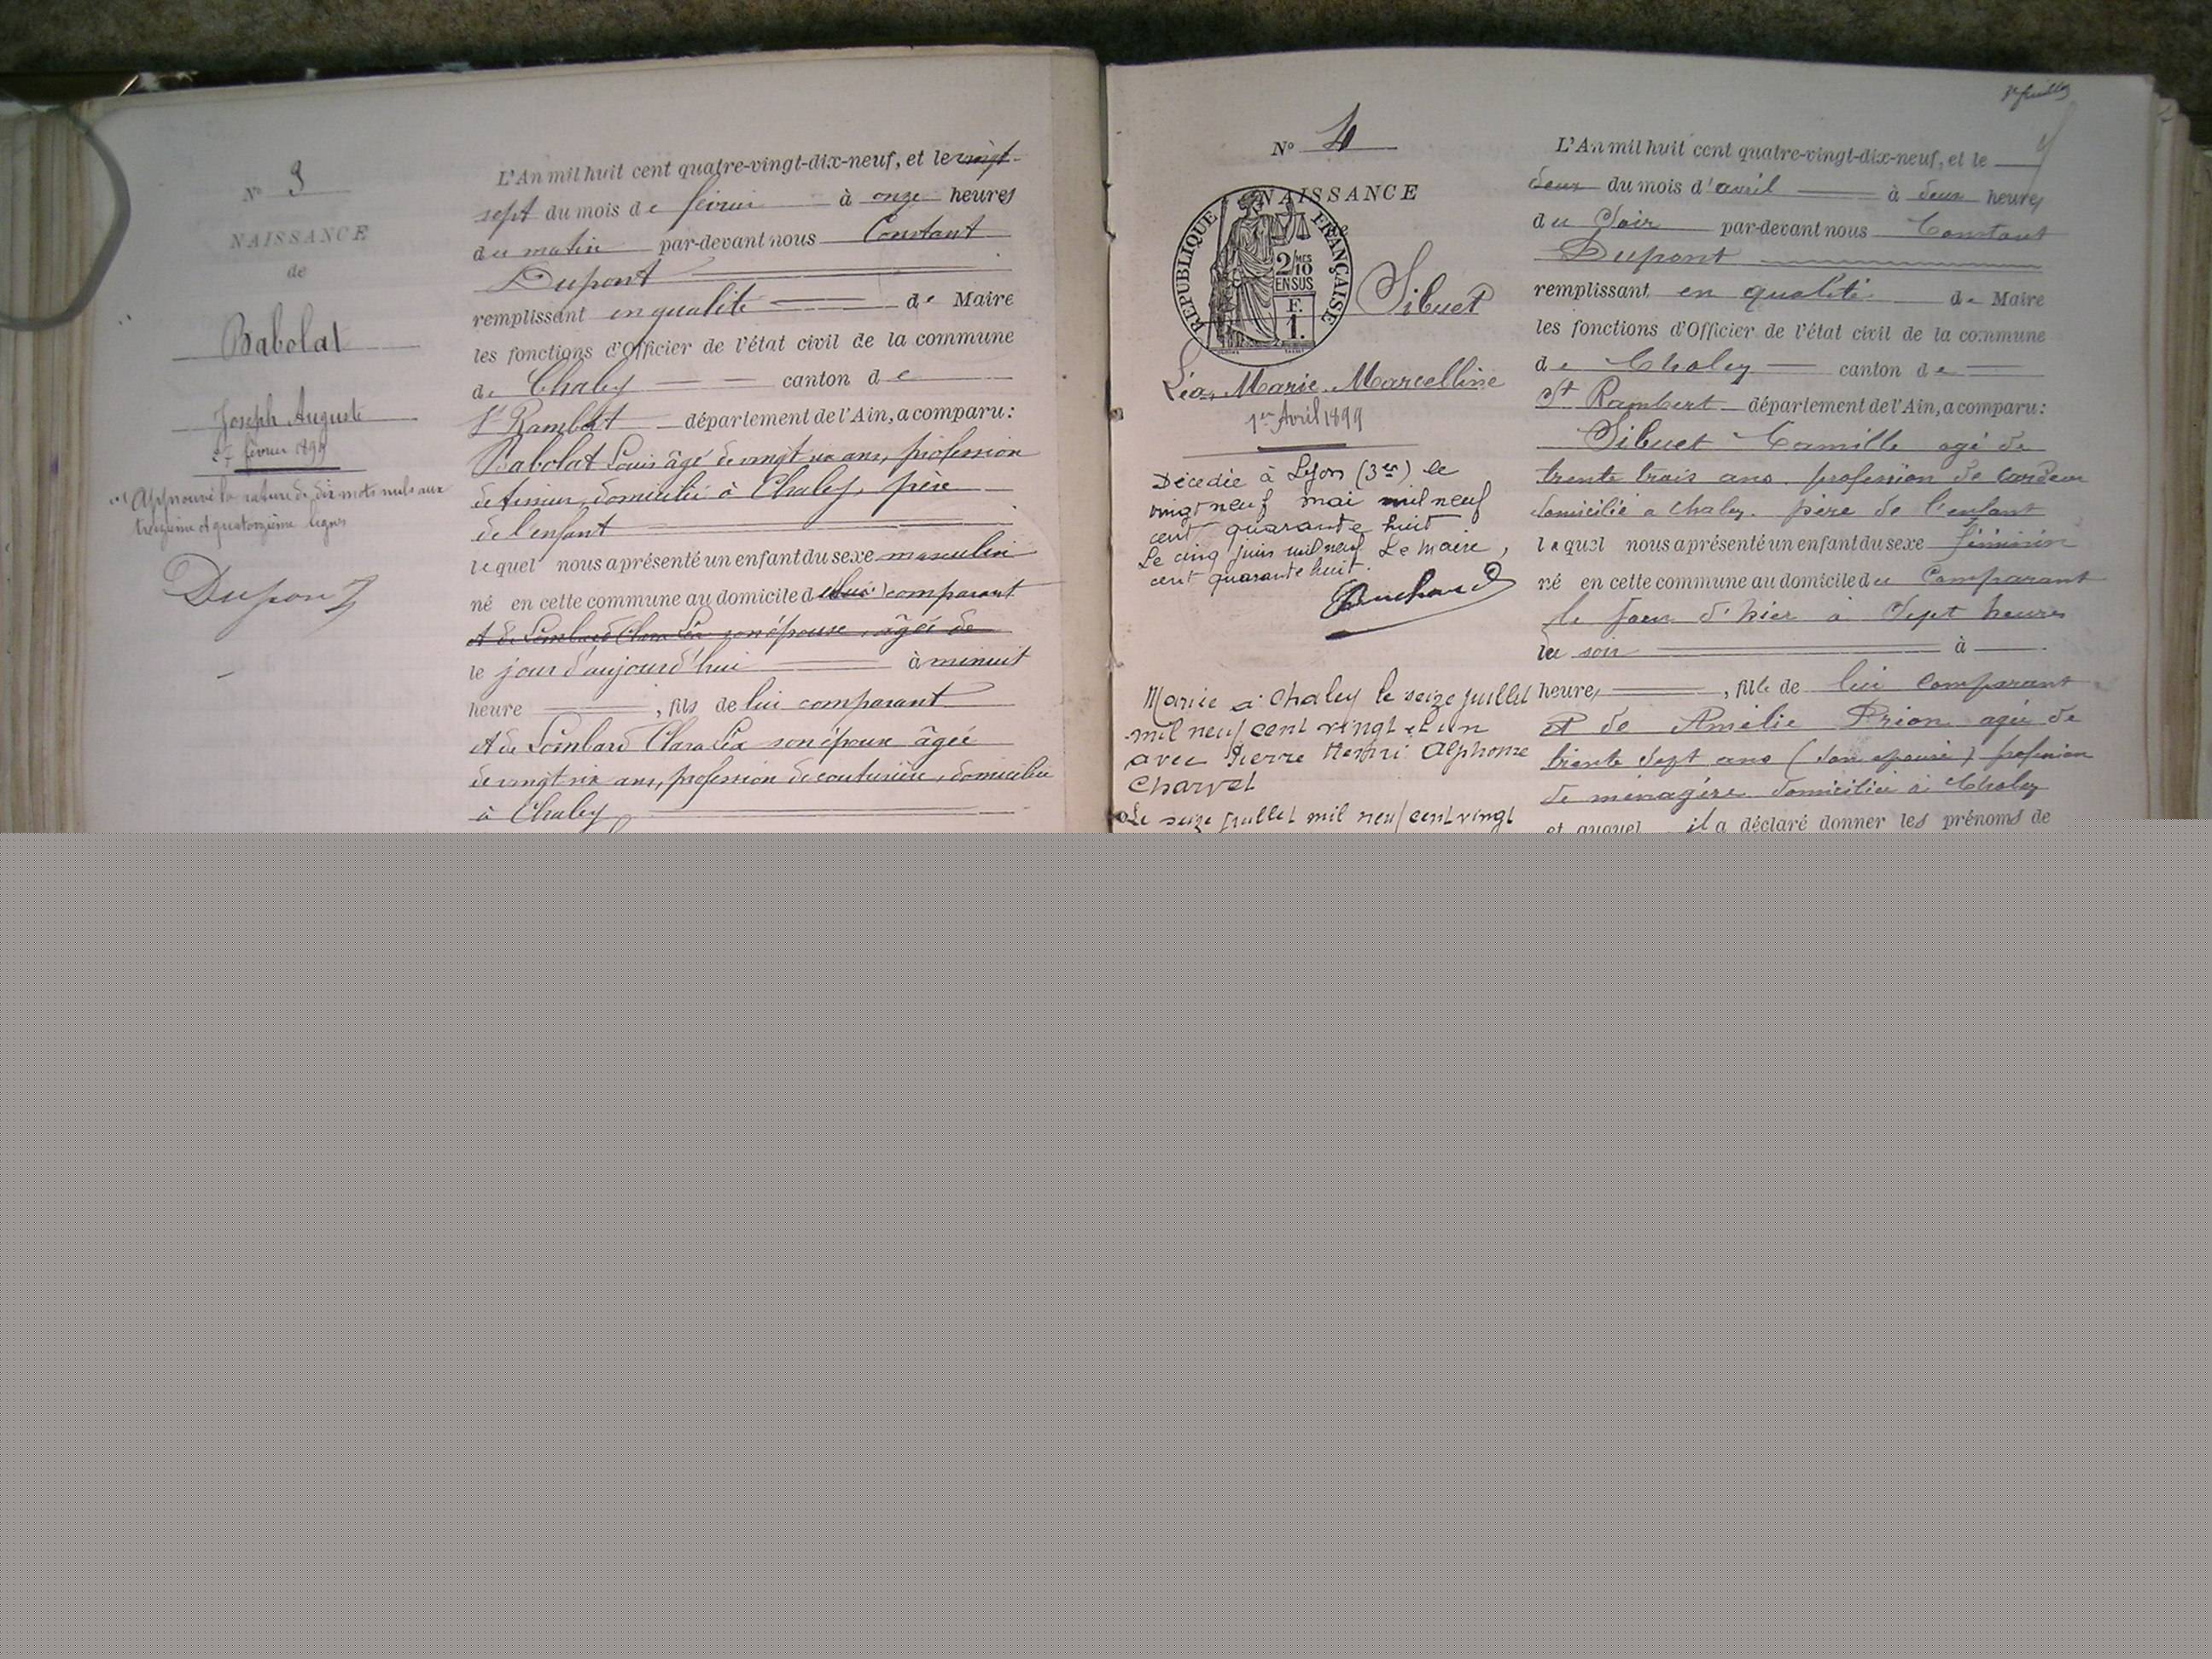 N° 3
NAISSANCE
de
Babolat
Joseph Auguste
27 février 1899
Approuvé la rature de dix mots nuls aux
treizième et quatorzième lignes
Dupont
L'An mil huit cent quatre-vingt-dix-neuf, et le vingt-
sept du mois de février à onze heures
du matin par-devant nous Constant
Dupont
remplissant en qualité de Maire
les fonctions d'Officier de l'état civil de la commune
de Chaley canton de
St Rambert département de l'Ain, a comparu:
Babolat Louis âgé de vingt six ans, profession
de domicilié à Chaley, père
de l'enfant
lequel nous a présenté un enfant du sexe masculin
né en cette commune au domicile d comparant
et de Lombard Clara Léa son épouse, âgée de
le jour d'aujourd'hui à minuit
heure , fils de lui comparant
et de Lombard Clara Léa son épouse âgée
de vingt six ans, profession de couturière, domiciliée
à Chaley
N° 4
NAISSANCE
REPUBLIQUE FRANÇAISE
2/10 MES
EN SUS
F.
1.
Sibuet
Léa Marie Marcelline
1er Avril 1899
Décédée à Lyon (3er) le
vingt neuf mai mil neuf
cent quarante huit
Le cinq juin mil neuf Le Maire,
cent quarante huit.
Mariée à Chaley le seize juillet
mil neuf cent vingt et un
avec Pierre Henri Alphonse
Charvet
Le seize juillet mil neuf cent vingt
L'An mil huit cent quatre-vingt-dix-neuf, et le
deux du mois d'avril à deux heures
du Soir par-devant nous Constant
Dupont
remplissant en qualité de Maire
les fonctions d'Officier de l'état civil de la commune
de Chaley canton de
St Rambert département de l'Ain, a comparu:
Sibuet Camille agé de
trente trois ans profession de cardeur
domicilié a chaley. père de l'enfant
lequel nous a présenté un enfant du sexe féminin
né en cette commune au domicile du Comparant
le jour d'hier à Sept heures
du soir à
heures , fille de lui Comparant
et de Amélie Prion agée de
trente sept ans (son épouse) profession
de ménagère domiciliée à Chaley
et auquel il a déclaré donner les prénoms de